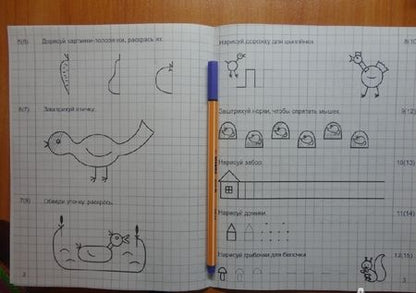 5(6) Дорисуй картинки-половинки, раскрась их.
6(7) Заштрихуй птичку.
7(9) Обведи уточку, раскрась.
2
Нарисуй дорожку для цыплёнка.
Заштрихуй норки, чтобы спрятать мышек. 9(12)
Нарисуй забор. 10(13)
Нарисуй домики. 11(14)
Нарисуй грибочки для белочки 12(15)
3